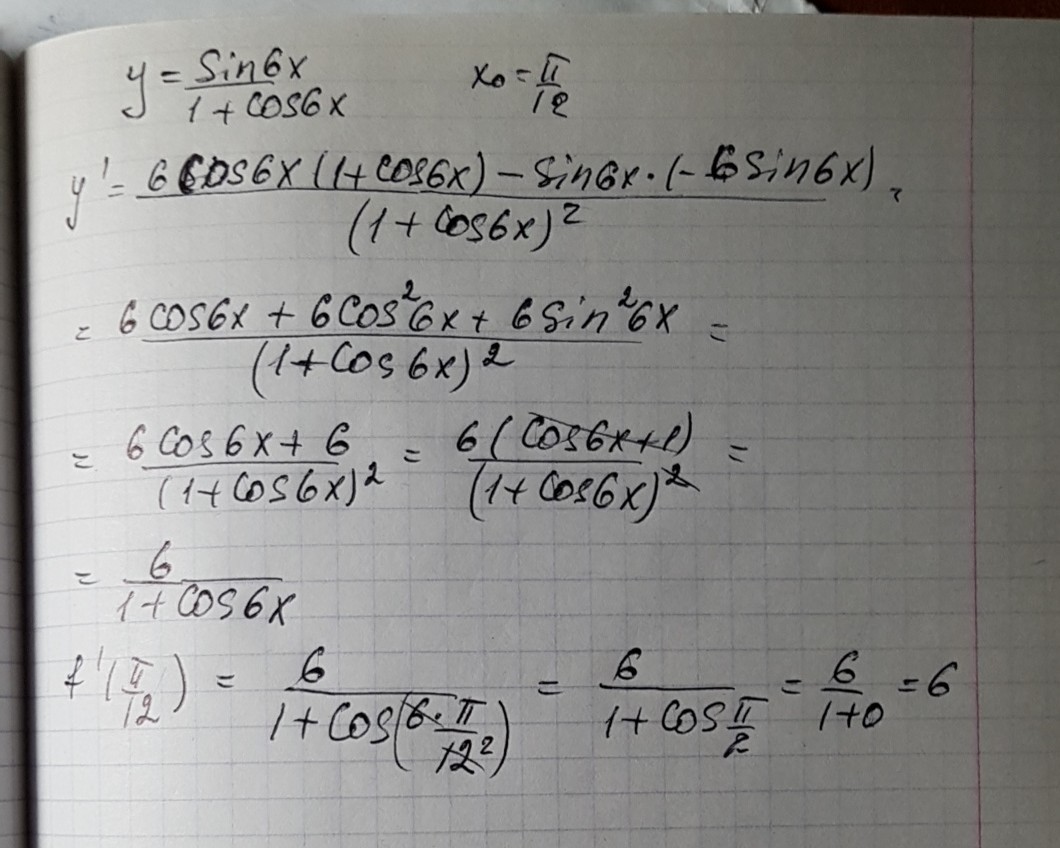 y = sin6x / 1 + cos6x x₀ = π/12
y' = 6cos6x (1+cos6x) − sin6x · (−6sin6x) / (1 + cos6x)² =
= 6cos6x + 6cos²6x + 6sin²6x / (1+cos6x)² =
= 6cos6x + 6 / (1+cos6x)² = 6(cos6x+1) / (1+cos6x)² =
= 6 / 1+cos6x
f'(π/12) = 6 / 1+cos(6·π/12 2) = 6 / 1+cos π/2 = 6 / 1+0 = 6